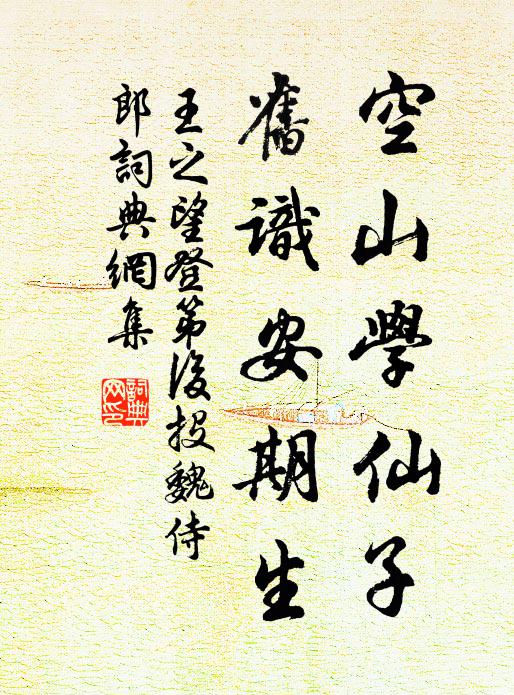 空山學仙子
舊識安期生
王之望登第後投魏侍
郎詞典網集
詞典
网印